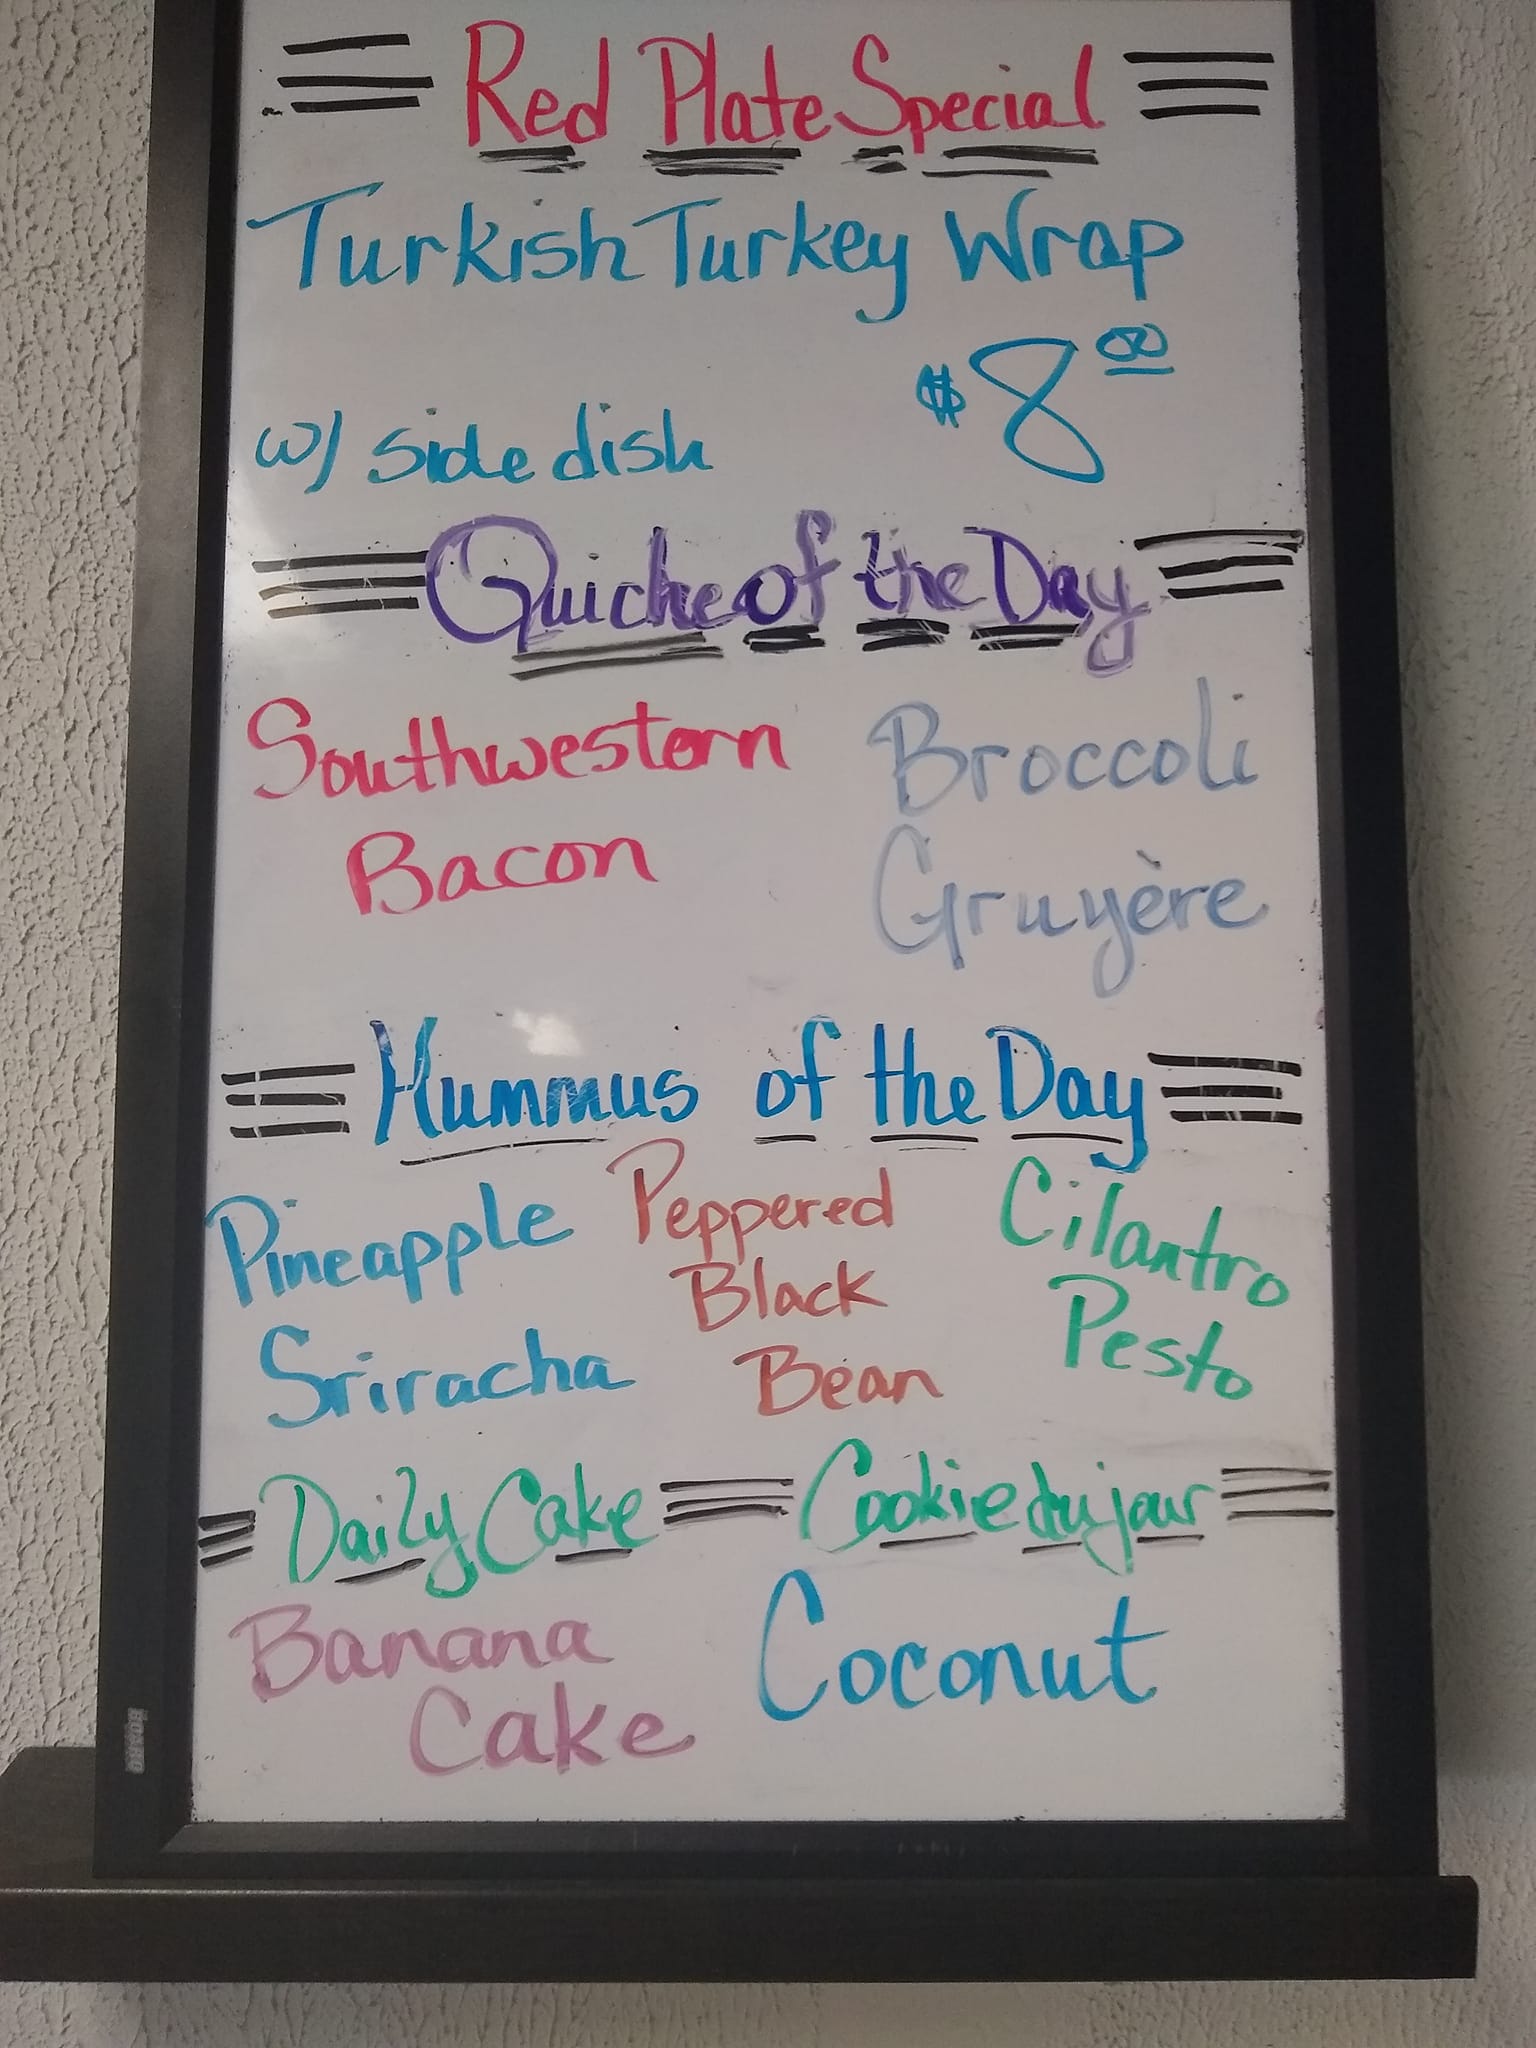 Red Plate Special
Turkish Turkey Wrap
$8.00
w/ side dish
Quiche of the Day
Southwestern
Bacon
Broccoli
Gruyère
Hummus of the Day
Pineapple
Sriracha
Peppered
Black
Bean
Cilantro
Pesto
Daily Cake
Banana
Cake
Cookie du jour
Coconut